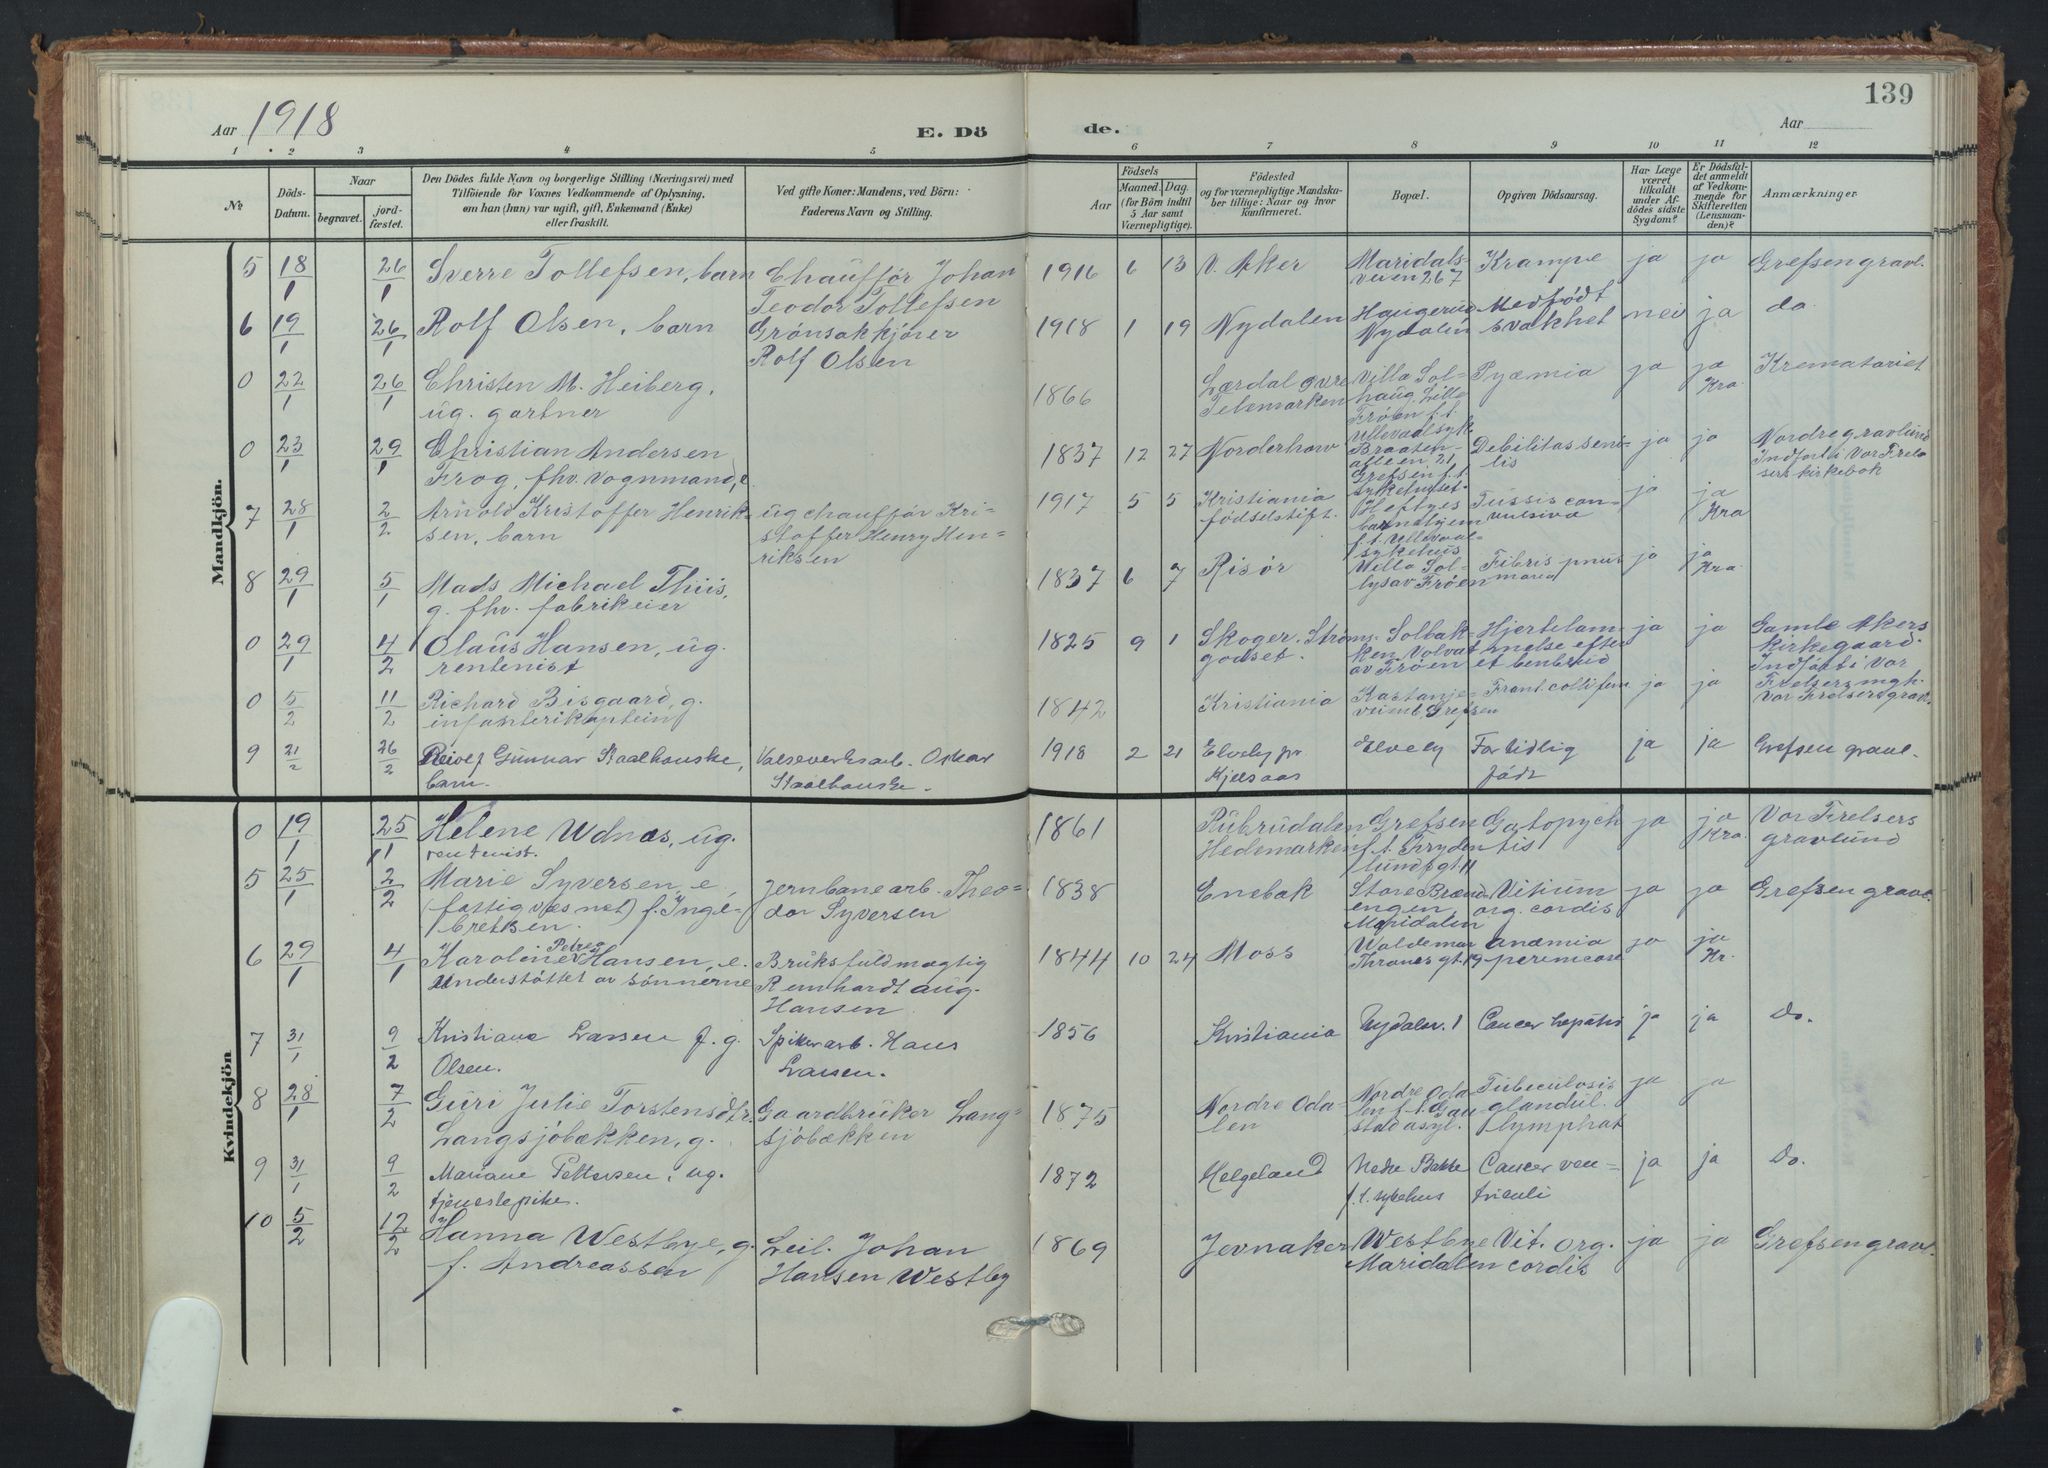 139
Aar 1918
E. Dö
de.
Aar
1 2 3 4 5 6 7 8 9 10 11 12
No
Döds-Datum.
Naar
begravet.
jord-fæstet.
Den Dödes fulde Navn og borgerlige Stilling (Næringsvei) med
Tilföiende for Voxnes Vedkommende af Oplysning,
om han (hun) var ugift, gift, Enkemand (Enke)
eller fraskilt.
Ved gifte Koner: Mandens, ved Börn:
Faderens Navn og Stilling.
Födsels
Aar
Maaned. Dag.
(for Börn indtil
5 Aar samt
Værnepligtige).
Födested
og for værnepligtige Mandska-
ber tillige: Naar og hvor
konfirmeret.
Bopæl.
Opgiven Dödsaarsag.
Har Læge
været
tilkaldt
under Af-
dödes sidste
Sygdom?
Er Dödsfal-
det anmeldt
af Vedkom-
mende for
Skifteretten
(Lensman-
den)?
Anmærkninger.
Mandkjön.
5 18/1 26/1 Sverre Tollefsen, barn Chauffør Johan Teodor Tollefsen 1916 6 13 V. Aker Maridals-veien 267 Krampe ja ja Grefsen gravl.
6 19/1 26/1 Rolf Olsen, barn Grønsakkjører Rolf Olsen 1918 1 19 Nydalen Haugerud Nydalen Medfødt svakhet nei ja do
0 22/1 26/1 Christen M. Heiberg, ug. gartner 1866 Lærdal øvre Telemarken Villa Sol-haug. Lille Frøen f.t. Ullevaal syk. Pyæmia ja ja Kra. Krematoriet
0 23/1 29/1 Christian Andersen Frog, fhv. vognmand, e 1837 12 27 Norderhow Braaten-alleen 21 Grefsen f.t. sykehuset Debilitas seni-lis ja ja Nordre gravlund Indført i Vor Frelsers kirkebok
7 28/1 2/2 Arnold Kristoffer Henrik-sen, barn ug chauffør Kri-stoffer Henry Hen-riksen 1917 5 5 Kristiania fødselstift. Heftyes barnehjem f.t. Ullevaal-sykehus Tussis con-vulsiva ja ja Kra
8 29/1 5/1 Mads Michael Thiis, g. fhv. fabrikeier 1837 6 7 Risør Villa Sol-lys av Frøen Fibris pneu ja ja Kra.
0 29/1 4/2 Olaus Hansen, ug. rentenist 1825 9 1 Skoger. Strøms-godset. Solbak-ken, Volvat av Frøen Hjertelam-melse efter et benbrud ja ja Gamle Akers kirkegaard. Indført i Vor Frelsers mgh.
0 5/2 11/2 Richard Bisgaard, g. infanterikaptein 1842 Kristiania Kastanje-veien 6 Grefsen Frant. colli fem. ja ja Vor Frelsers gravl.
9 21/2 26/2 Gunnar Staalhanske, barn. Valseverksarb. Oskar Staalhanske. 1918 2 21 Elvely pr Kjelsaas Elvely For tidlig født ja ja Grefsen gravl.
Kvindekjön
0 19/1 25/1 Helene Udnæs, ug. rentenist. 1861 Hedemarken Grefsen f.t. Fryden-lundsgt. 11 ja ja Kra. Vor Frelsers gravlund
5 25/1 2/2 Marie Syversen, e., (fattigvæsnet) f. Inge-bretsen. Jernbanearb. Theo-dor Syversen 1838 Enebak Store Brænd-engen, Maridalen Vitium org. cordis ja ja Grefsen gravl.
6 29/1 4/1 Karoline Petrea Hansen, e. Understøttet av sønnerne Bruksfuldmægtig Reinhardt aug. Hansen 1844 10 24 Moss Waldemar Thranes gt. 19 anæmia ja ja Kr.
7 31/1 9/2 Kristiane Larsen f. g. Olsen. Spikerarb. Hans Larsen. 1856 Kristiania Nydalen 1 Cancer hepatis ja ja Do.
8 28/1 7/2 Guri Julie Torstensdtr. Langsjøbækken, g. Gaardbruker Lang-sjøbækken 1875 Nordre Oda-len Nordre Oda-len f.t. Gau-stad asyl. Tubeculosis glandul. lymphat ja ja
9 31/1 9/2 Mariane Pettersen, ug. tjenestepike. 1872 Helgeland Nedre Bakke f.t. sykehus Cancer ven-triculi ja ja Do.
10 5/2 12/2 Hanna Westbye, g. f. Andreassen Leil. Johan Hansen Westby 1869 Jevnaker Westbye Maridalen Vit. org. cordis ja ja Grefsen gravl.